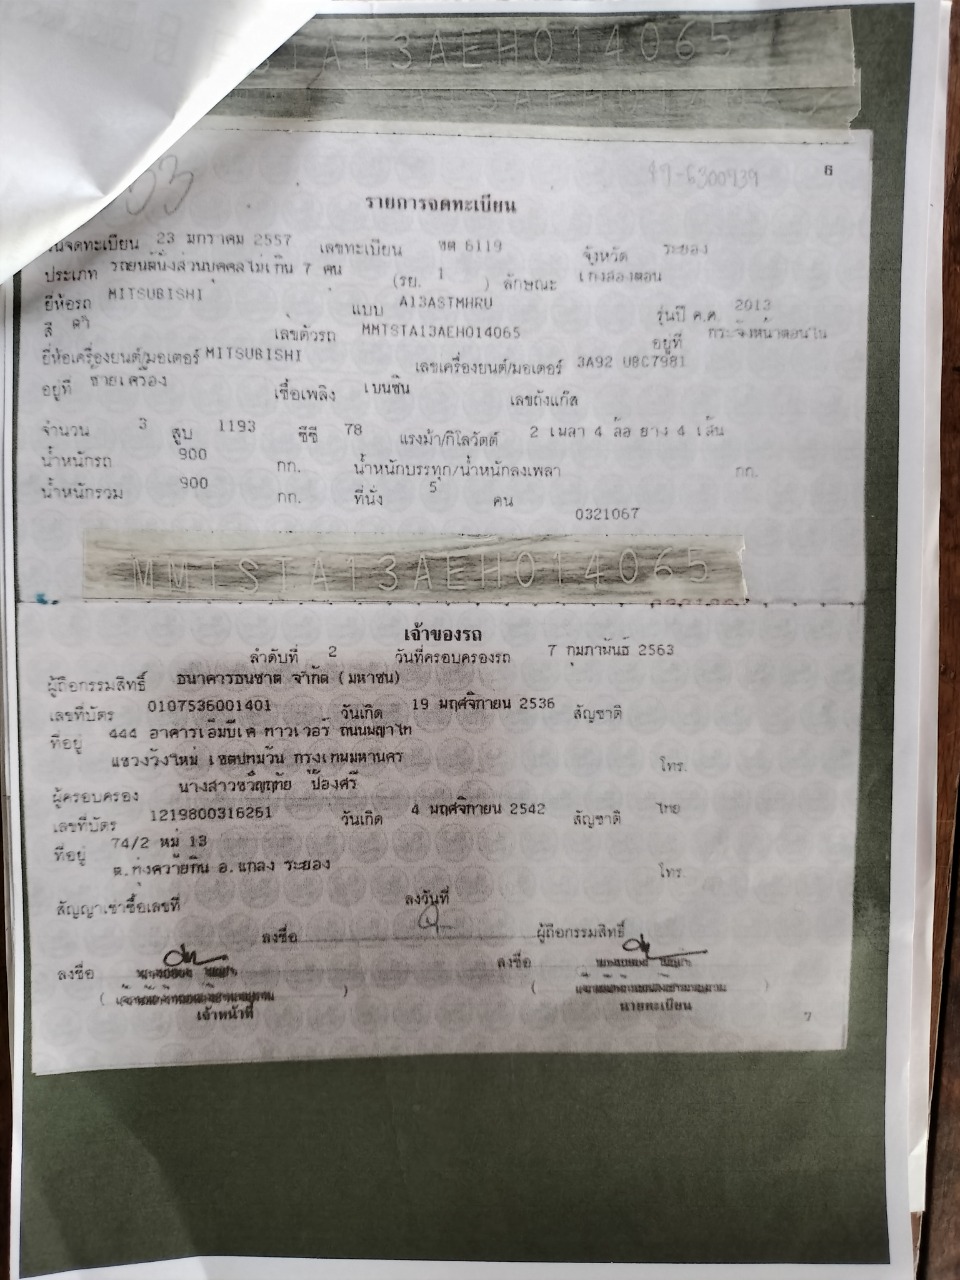 STA13AEH014065
53
49-6300939
6
รายการจดทะเบียน
วันจดทะเบียน 23 มกราคม 2557 เลขทะเบียน 6119 จังหวัด ระยอง
ประเภท รถยนต์นั่งส่วนบุคคลไม่เกิน 7 คน (รย. 1 ) ลักษณะ เก๋งสองตอน
ยี่ห้อรถ MITSUBISHI แบบ A13ASTMHRU รุ่นปี ค.ศ. 2013
สี ดำ เลขตัวรถ MMTSTA13AEH014065 อยู่ที่ กระจังหน้าตอนใน
ยี่ห้อเครื่องยนต์/มอเตอร์ MITSUBISHI เลขเครื่องยนต์/มอเตอร์ 3A92 UBC7981
อยู่ที่ ซ้ายเครื่อง เชื้อเพลิง เบนซิน เลขถังแก๊ส
จำนวน 3 สูบ 1193 ซีซี 78 แรงม้า/กิโลวัตต์ 2 เพลา 4 ล้อ ยาง 4 เส้น
น้ำหนักรถ 900 กก. น้ำหนักบรรทุก/น้ำหนักลงเพลา กก.
น้ำหนักรวม 900 กก. ที่นั่ง 5 คน
0321067
MMTSTA13AEH014065
เจ้าของรถ
ลำดับที่ 2 วันที่ครอบครองรถ 7 กุมภาพันธ์ 2563
ผู้ถือกรรมสิทธิ์ ธนาคารธนชาต จำกัด (มหาชน)
เลขที่บัตร 0107536001401 วันเกิด 19 พฤศจิกายน 2536 สัญชาติ
ที่อยู่ 444 อาคารเอ็มบีเค ทาวเวอร์ ถนนพญาไท
แขวงวังใหม่ เขตปทุมวัน กรุงเทพมหานคร โทร.
ผู้ครอบครอง นางสาวขวัญฤทัย ป้องศรี
เลขที่บัตร 1219800316261 วันเกิด 4 พฤศจิกายน 2542 สัญชาติ ไทย
ที่อยู่ 74/2 หมู่ 13
ต.ทุ่งควายกิน อ.แกลง ระยอง โทร.
สัญญาเช่าซื้อเลขที่ ลงวันที่
ลงชื่อ ผู้ถือกรรมสิทธิ์
ลงชื่อ ลงชื่อ
( ) ( )
เจ้าหน้าที่ นายทะเบียน
7